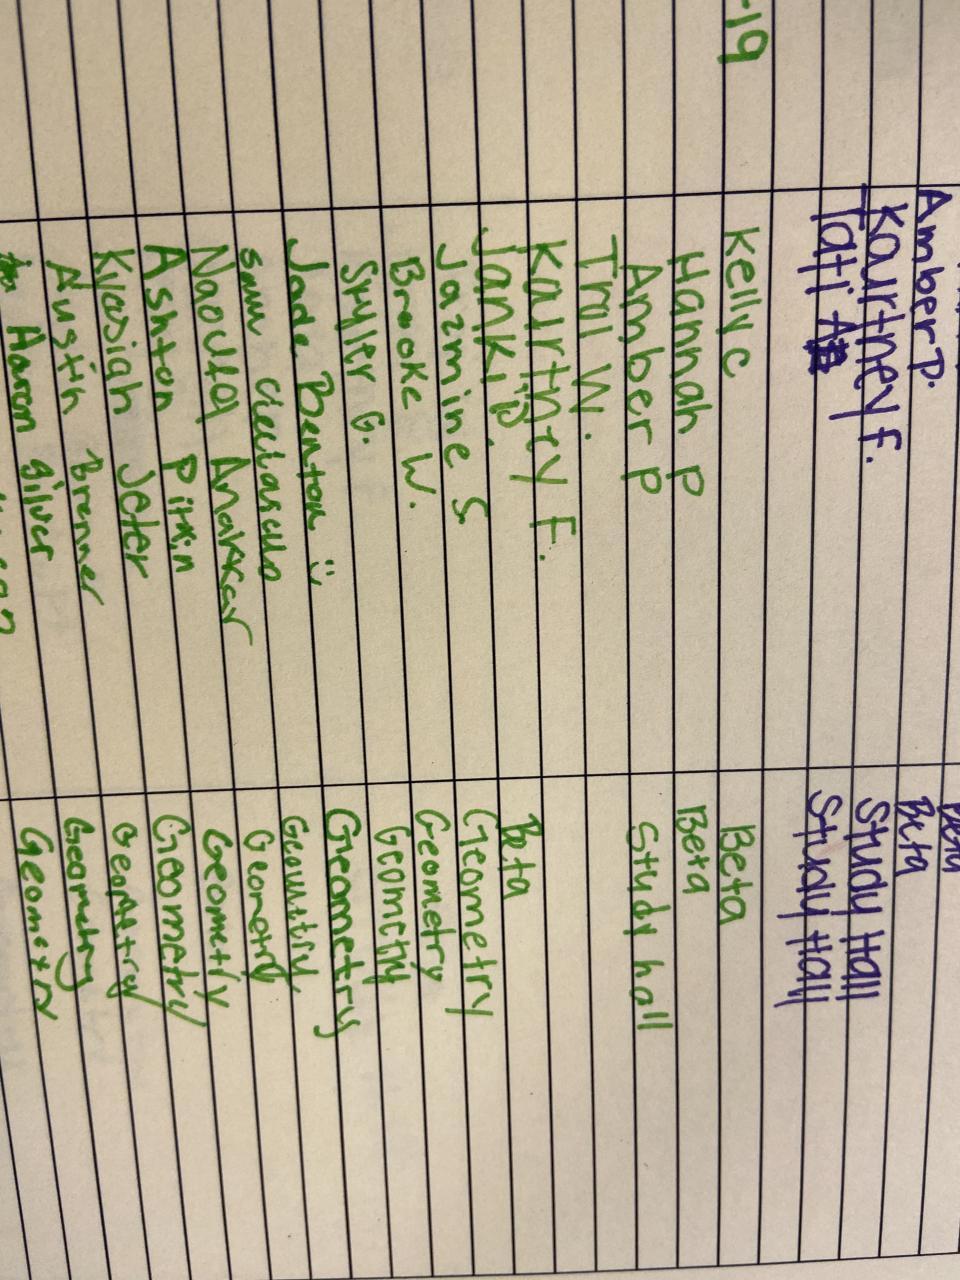 Beta
Amber P. Beta
Kourtney F. Study Hall
Tati Study Hall
-19 Kelly C Beta
Hannah P Beta
Amber P Study hall
Trai W.
Kourtney F.
Janki P. Beta
Jazmine S Geometry
Brooke W. Geometry
Skyler G. Geometry
Jade Benton Geometry
Sam Geometry
Naoufal Anakkar Geometry
Ashton Pitkin Geometry
Kyasiah Jeter Geometry
Austin Brenner Geometry
Aaron Silver Geometry
Geometry